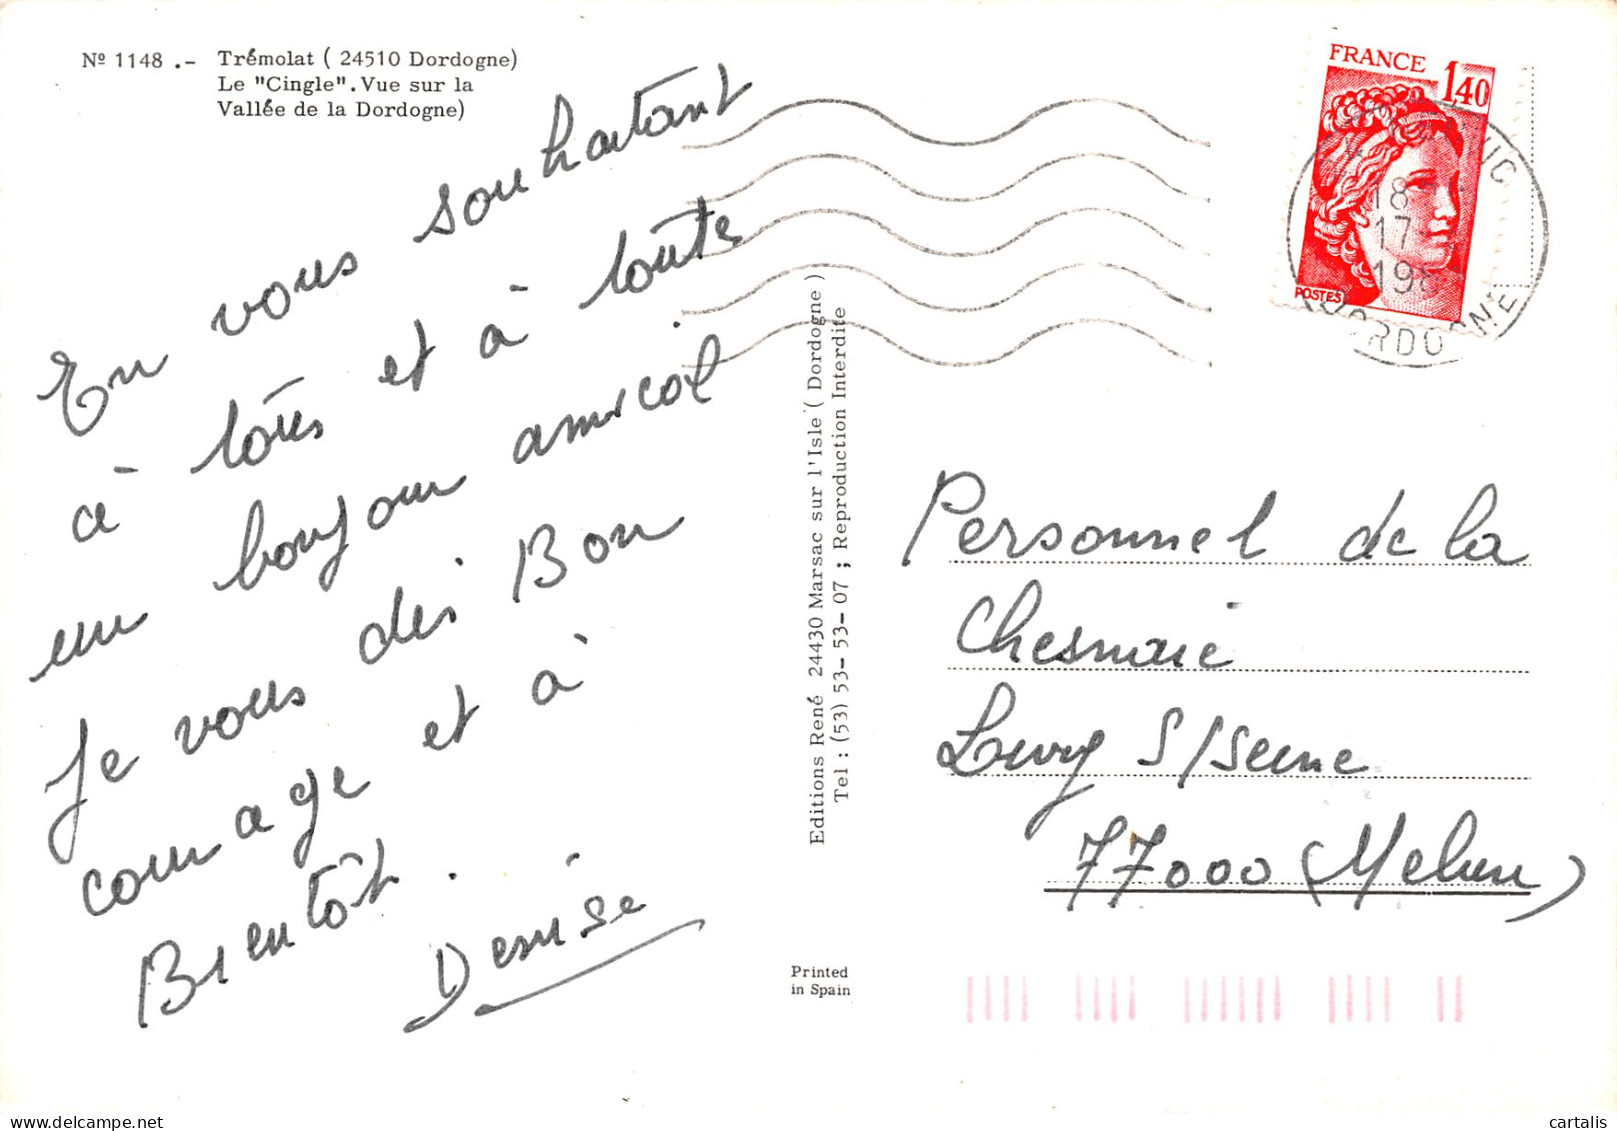 Nº 1148 .- Trémolat ( 24510 Dordogne)
Le "Cingle". Vue sur la
Vallée de la Dordogne)
En vous souhaitant
à tôtes et à toute
un bonjour amical
Je vous dis Bon
courage et à
Bientôt.
Denise
Editions René 24430 Marsac sur l'Isle ( Dordogne )
Tel : (53) 53-53-53-07 ; Reproduction Interdite
Printed
in Spain
FRANCE
1,40
POSTES
18
17
198
DORDOGNE
Personnel de la
Chesnaie
Livry S/Seine
77000 (Melun)
cartalis